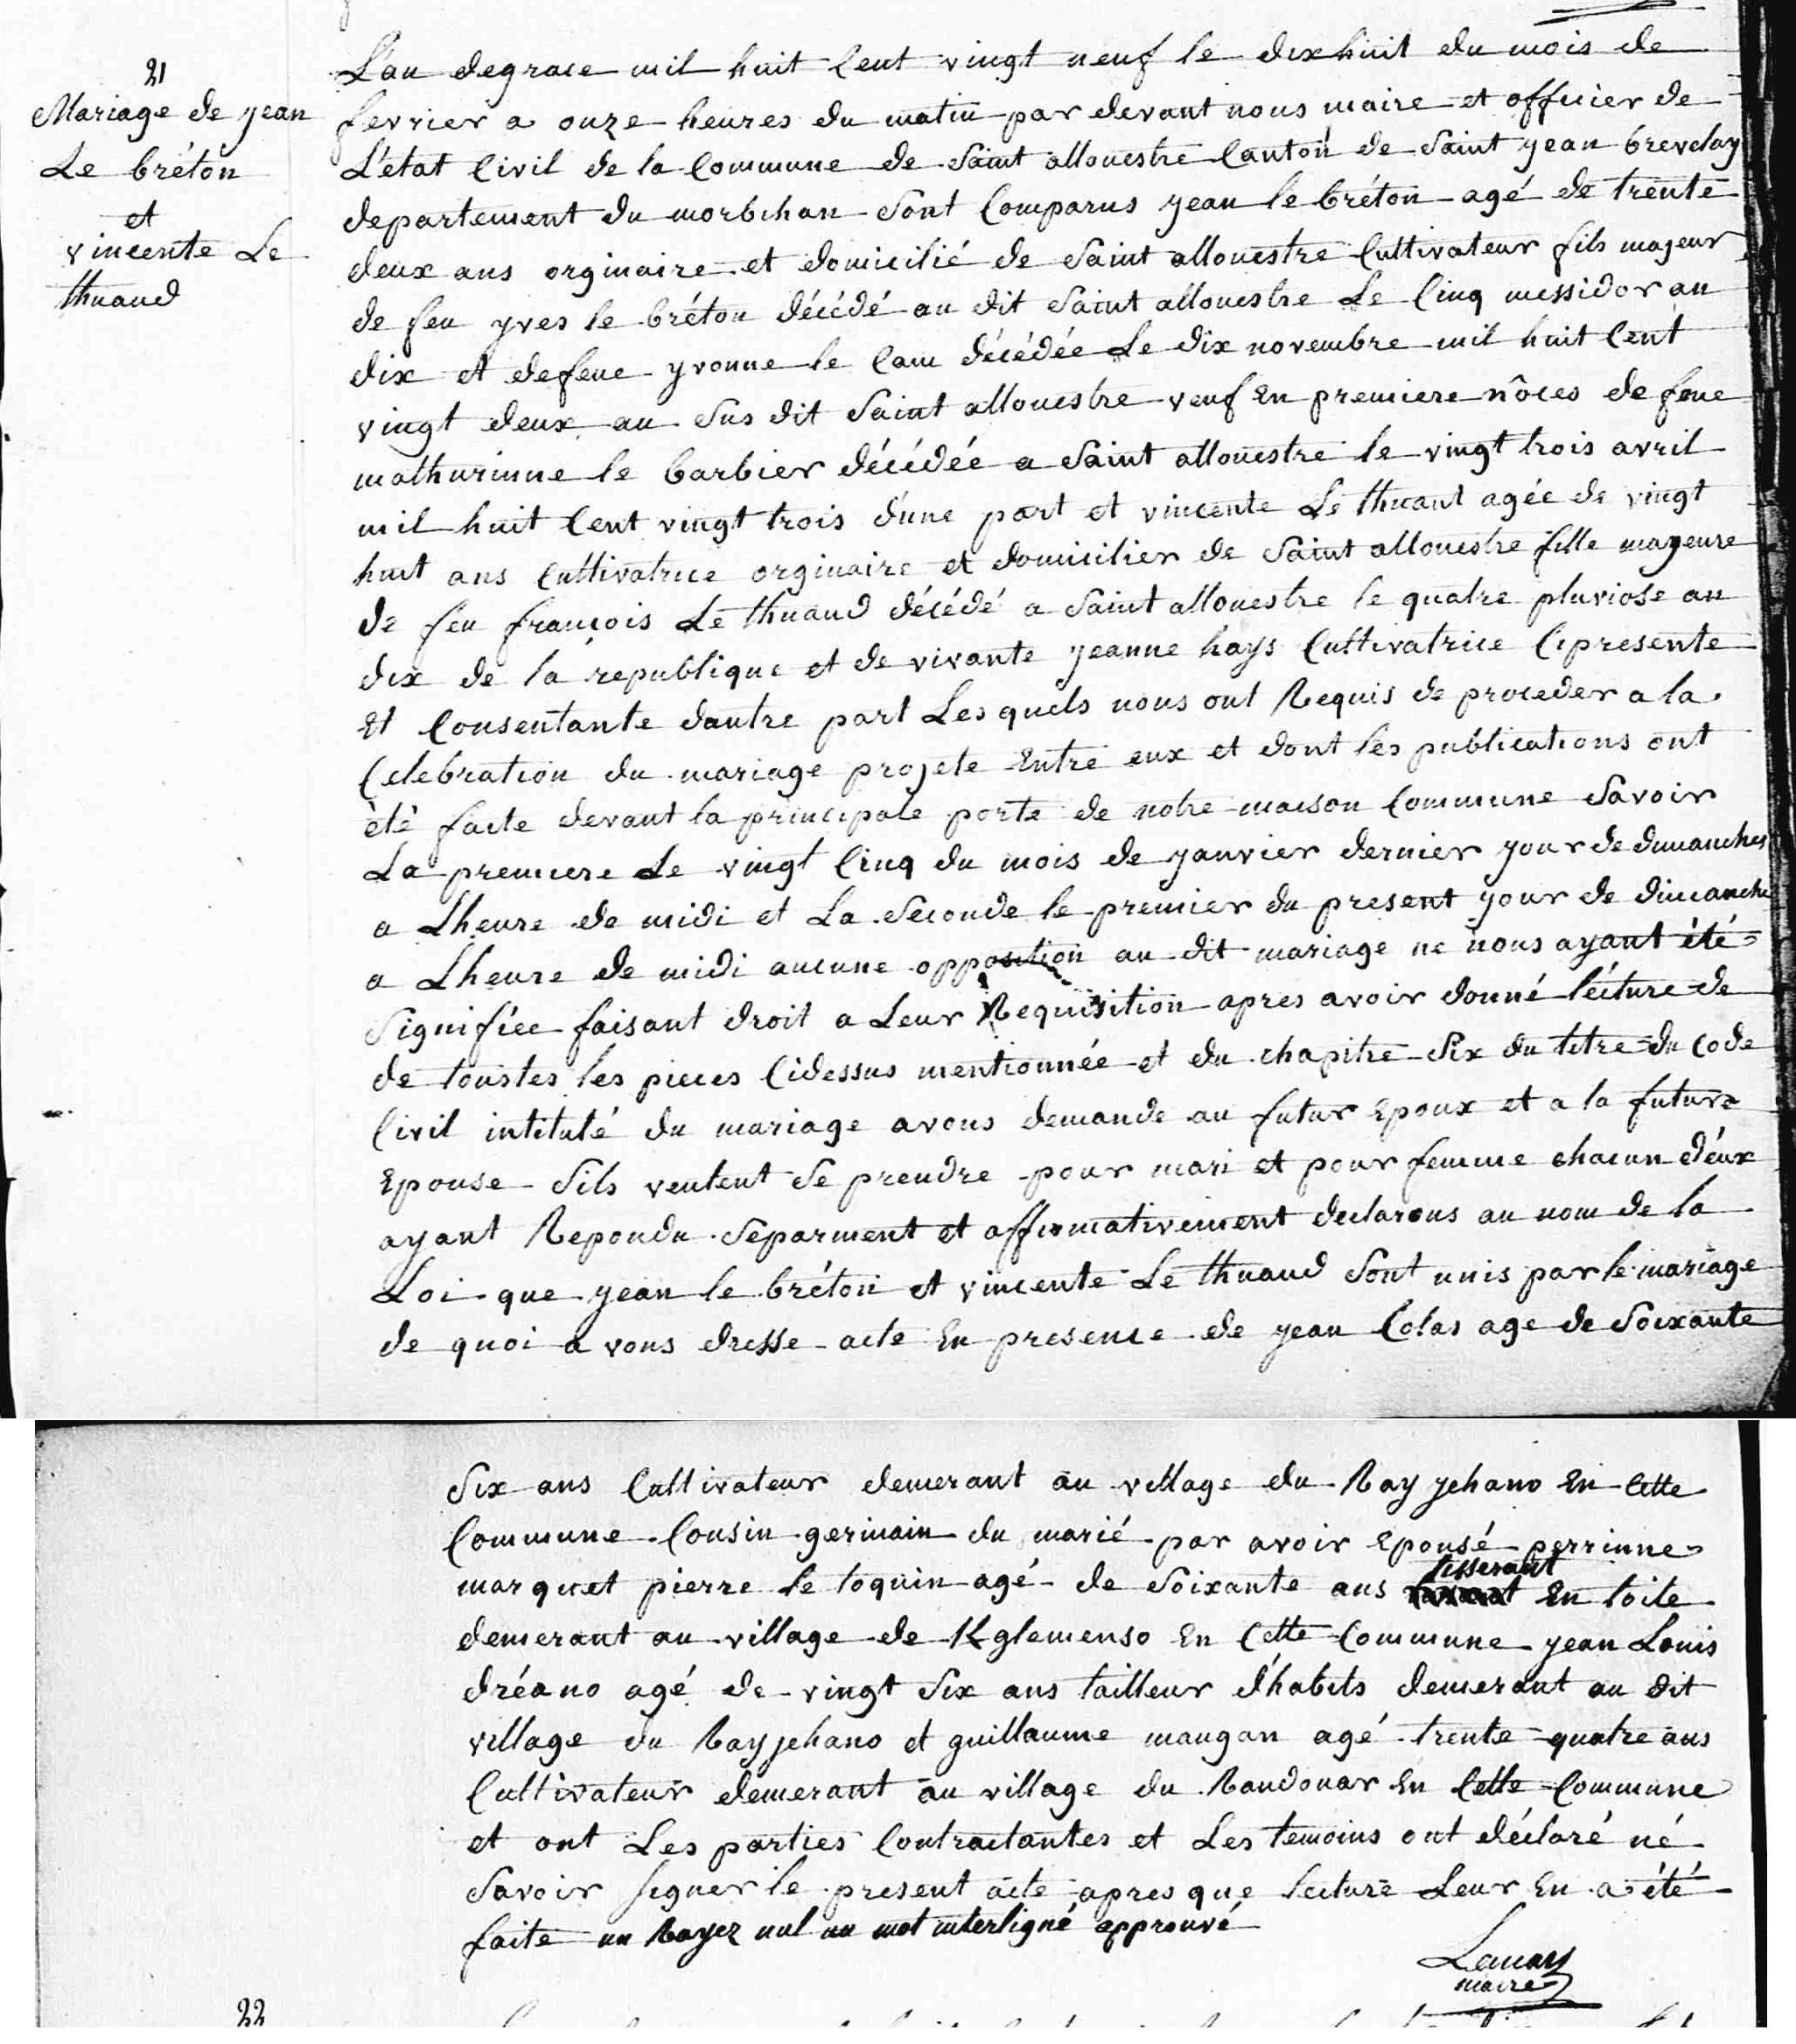 21
Mariage de jean
Le bréton
et
vincente Le
thuaud
L'an de grace mil huit Cent vingt neuf le dix huit du mois de
fevrier a onze heures du matin par devant nous maire et officier de
L'état Civil de la Commune de Saint allouestre Canton de Saint jean brevelay
departement du morbihan Sont Comparus jean le bréton agé de trente
deux ans orginaire et domicilié de Saint allouestre Cultivateur fils majeur
de feu yves le bréton décédé au dit Saint allouestre Le Cinq messidor an
dix et de feue yvonne le Cam décédée Le dix novembre mil huit Cent
vingt deux au Sus dit Saint allouestre veuf En premiere nôces de feue
mathurinne le barbier décédée a Saint allouestre le vingt trois avril
mil huit Cent vingt trois d'une part et vincente Le thuaut agée de vingt
huit ans Cultivatrice orginaire et domicilier de Saint allouestre fille majeure
de feu françois Le thuaud décédé a Saint allouestre le quatre pluviose an
dix de la republique et de vivante jeanne hays Cultivatrice Cipresente
Et Consentante dautre part Les quels nous ont Requis de proceder a la
Celebration du mariage projete Entre eux et dont les publications ont
èté faite devant la principale porte de notre maison Commune Savoir
La premiere Le vingt Cinq du mois de janvier dernier jour de dimanches
a Lheure de midi et La Seconde le premier du present jour de dimanche
a Lheure de midi aucune opposition au dit mariage ne nous ayant été
Signifiée faisant droit a Leur Requisition apres avoir donné lécture de
de toustes les pieces Cidessus mentionnée et du chapitre Six du titre du code
Civil intitulé du mariage avons demande au futur Epoux et a la future
Epouse Sils veulent Se prendre pour mari et pour femme chacun d'éux
ayant Repondu Séparment et affirmativement declarons au nom de la
Loi que jean le bréton et vincente Le thuaud Sont unis par le mariage
de quoi a vons dresse acte En presence de jean Colas age de Soixante
Six ans Cultivateur demerant au village du Ray jehano En Cette
Commune Cousin germain du marié par avoir Epousé perrinne
marquet pierre le toquin agé de Soixante ans tisserant En toile
demerant au village de Kglemenso En Cette Commune jean Louis
dréano agé de vingt Six ans tailleur d'habits demerant au dit
village du Ray jehano et guillaume maugan agé trente quatre ans
Cultivateur demerant au village du Randouar En Cette Commune
et ont Les parties Contractantes et Les temoins ont déclaré né
Savoir Signer le present acte apres que lecture Leur En a été
faite un Rayez nul un mot interligné approuvé
maire
22